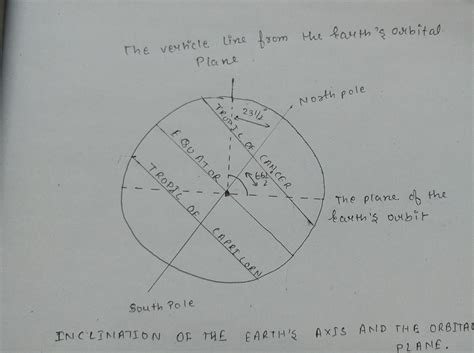 The verticle line from the Earth's orbital
Plane
North pole
23½
TROPIC OF CANCER
EQUATOR
66½
TROPIC OF CAPRICORN
The plane of the
Earth's orbit
South Pole
INCLINATION OF THE EARTH'S AXIS AND THE ORBITAL
PLANE.